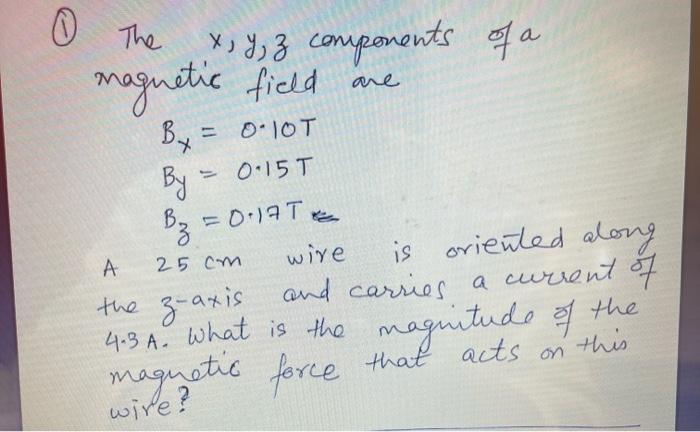 ① The x, y, z components of a
magnetic field are
Bx = 0.10T
By = 0.15T
Bz = 0.17T
A 25 cm wire is oriented along
the z-axis and carries a current of
4.3 A. What is the magnitude of the
magnetic force that acts on this
wire?